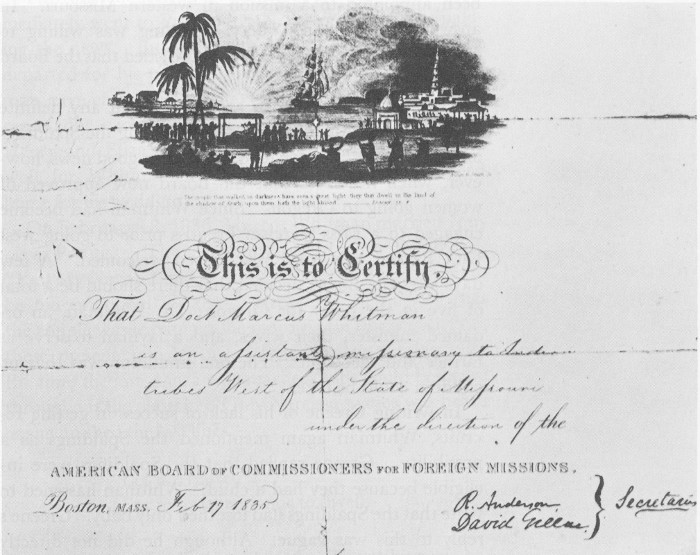 The people that walked in darkness have seen a great light: they that dwell in the land of
the shadow of death, upon them hath the light shined.
This is to Certify,
That Doct Marcus Whitman
is an assistant missionary to Indian
tribes West of the State of Missouri
under the direction of the
AMERICAN BOARD OF COMMISSIONERS FOR FOREIGN MISSIONS.
Boston, MASS. Feb 17 1835
R. Anderson
David Greene
Secretaries